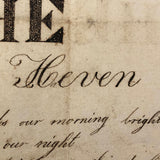 HE
Heven
our morning bright
our night